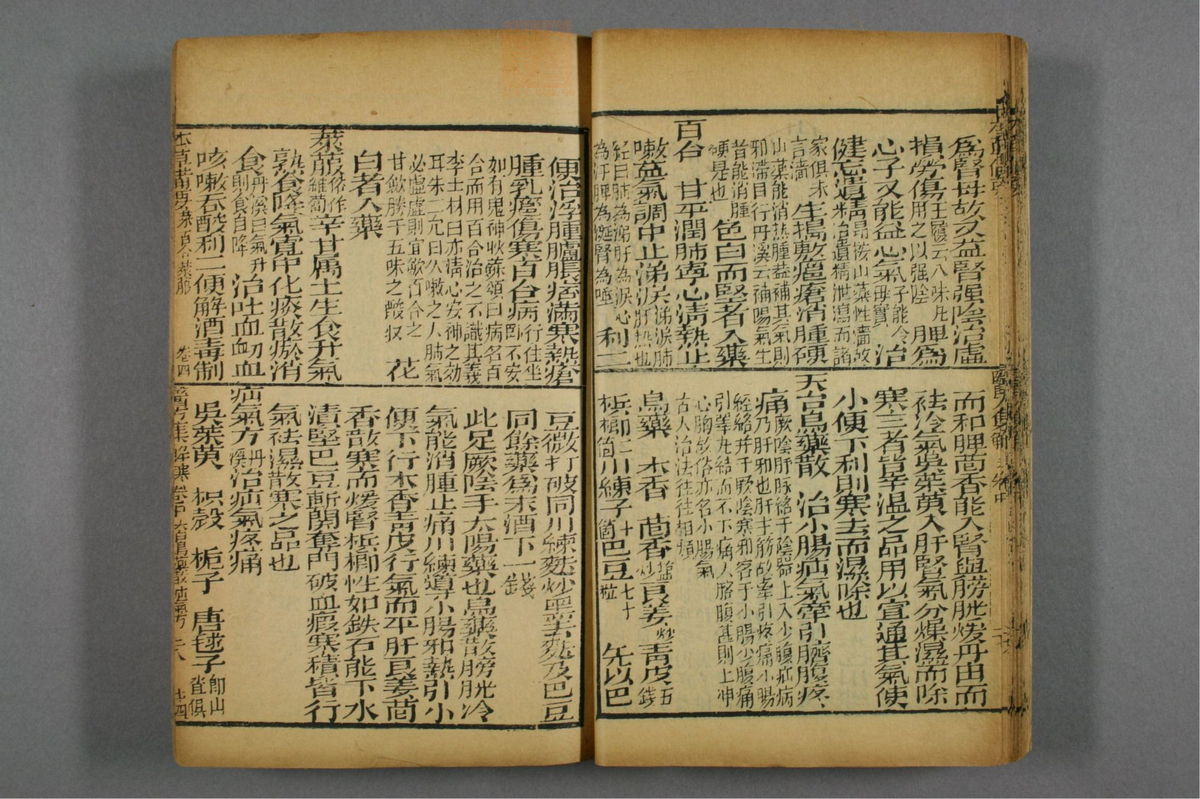 為腎母故又益腎强陰治虛
損勞傷王履云八味丸用之以强陰
心子又能益心氣子能令母實治
健忘遺精昂按山藥性濇故治遺精泄瀉而諸
家俱未言濇生搗敷瘡瘡消腫硬
山藥能消熱腫蓋補其氣則邪滯自行丹溪云補陽氣生
者能消腫硬是也色白而堅者入藥
百合 甘平潤肺寧心清熱止
嗽益氣調中止涕淚涕淚肺肝熱也
經曰肺為涕肝為淚心為汗脾為涎腎為唾利二
便治浮腫臚脹痞滿寒熱瘡
腫乳癰傷寒百合病行住坐臥不安
如有鬼神狀蘇頌曰病名百合而用百合治之不識其義
李士材曰亦清心安神之効耳朱二允曰久嗽之人肺氣
必虛虛則宜歛百合之甘歛勝于五味之酸收 花
白者入藥
萊菔俗作蘿蔔辛甘屬土生食升氣
熟食降氣寬中化痰散瘀消
食丹溪曰氣升則食自降治吐血衄血
咳嗽吞酸利二便解酒毒制
本草備要 萊 百合 萊菔 卷四
而和脾茴香能入腎與膀胱煖丹田而
祛冷氣吳茱萸入肝腎氣分燥濕而除
寒三者皆辛溫之品用以宣通其氣使
小便下利則寒去而濕除也
天台烏藥散 治小腸疝氣牽引臍腹疼
痛厥陰肝脉絡于陰器上入少腹疝病乃肝邪也肝主筋故牽引疼痛小腸
經絡并于厥陰寒邪客于小腸少腹痛引睾丸結而不下痛人胳腹甚則上冲
心胸故俗亦名小腸氣古人治法往往相類
烏藥 木香 茴香鹽炒良姜炒青皮五錢
檳榔二箇川練子十箇巴豆七十粒 先以巴
豆微打破同川練麩炒黑去麩及巴豆
同餘藥為末酒下一錢
此足厥陰手太陽藥也烏藥散膀胱冷
氣能消腫止痛川練導小腸邪熱引小
便下行木香青皮行氣而平肝良姜茴
香散寒而煖腎檳榔性如鉄石能下水
潰堅巴豆斬關奪門破血瘕寒積皆行
氣祛濕散寒之品也
疝氣方丹溪治疝氣疼痛
吳茱萸 枳殼 梔子 唐毬子即山查俱
醫方集解 卷中 天台烏藥散 疝氣方